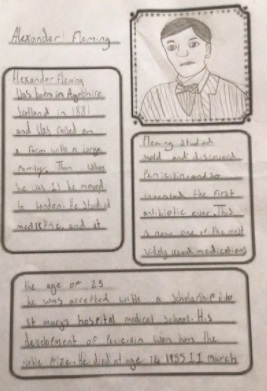 Alexander Fleming
Alexander Fleming
Was born in Ayrshire
Scotland in 1881
and was raised on
a farm with a large
family. Then when
he was 13 he moved
to London. He studied
medicine, and at
Fleming studied
mold and discovered
Penicillin and so
invented the first
antibiotic ever. This
is now one of the most
widely used medications
the age of 25
he was accepted with a scholarship into
st marys hospital medical school. His
development of Penicillin won him the
Prize. He died at age 1955 11 march